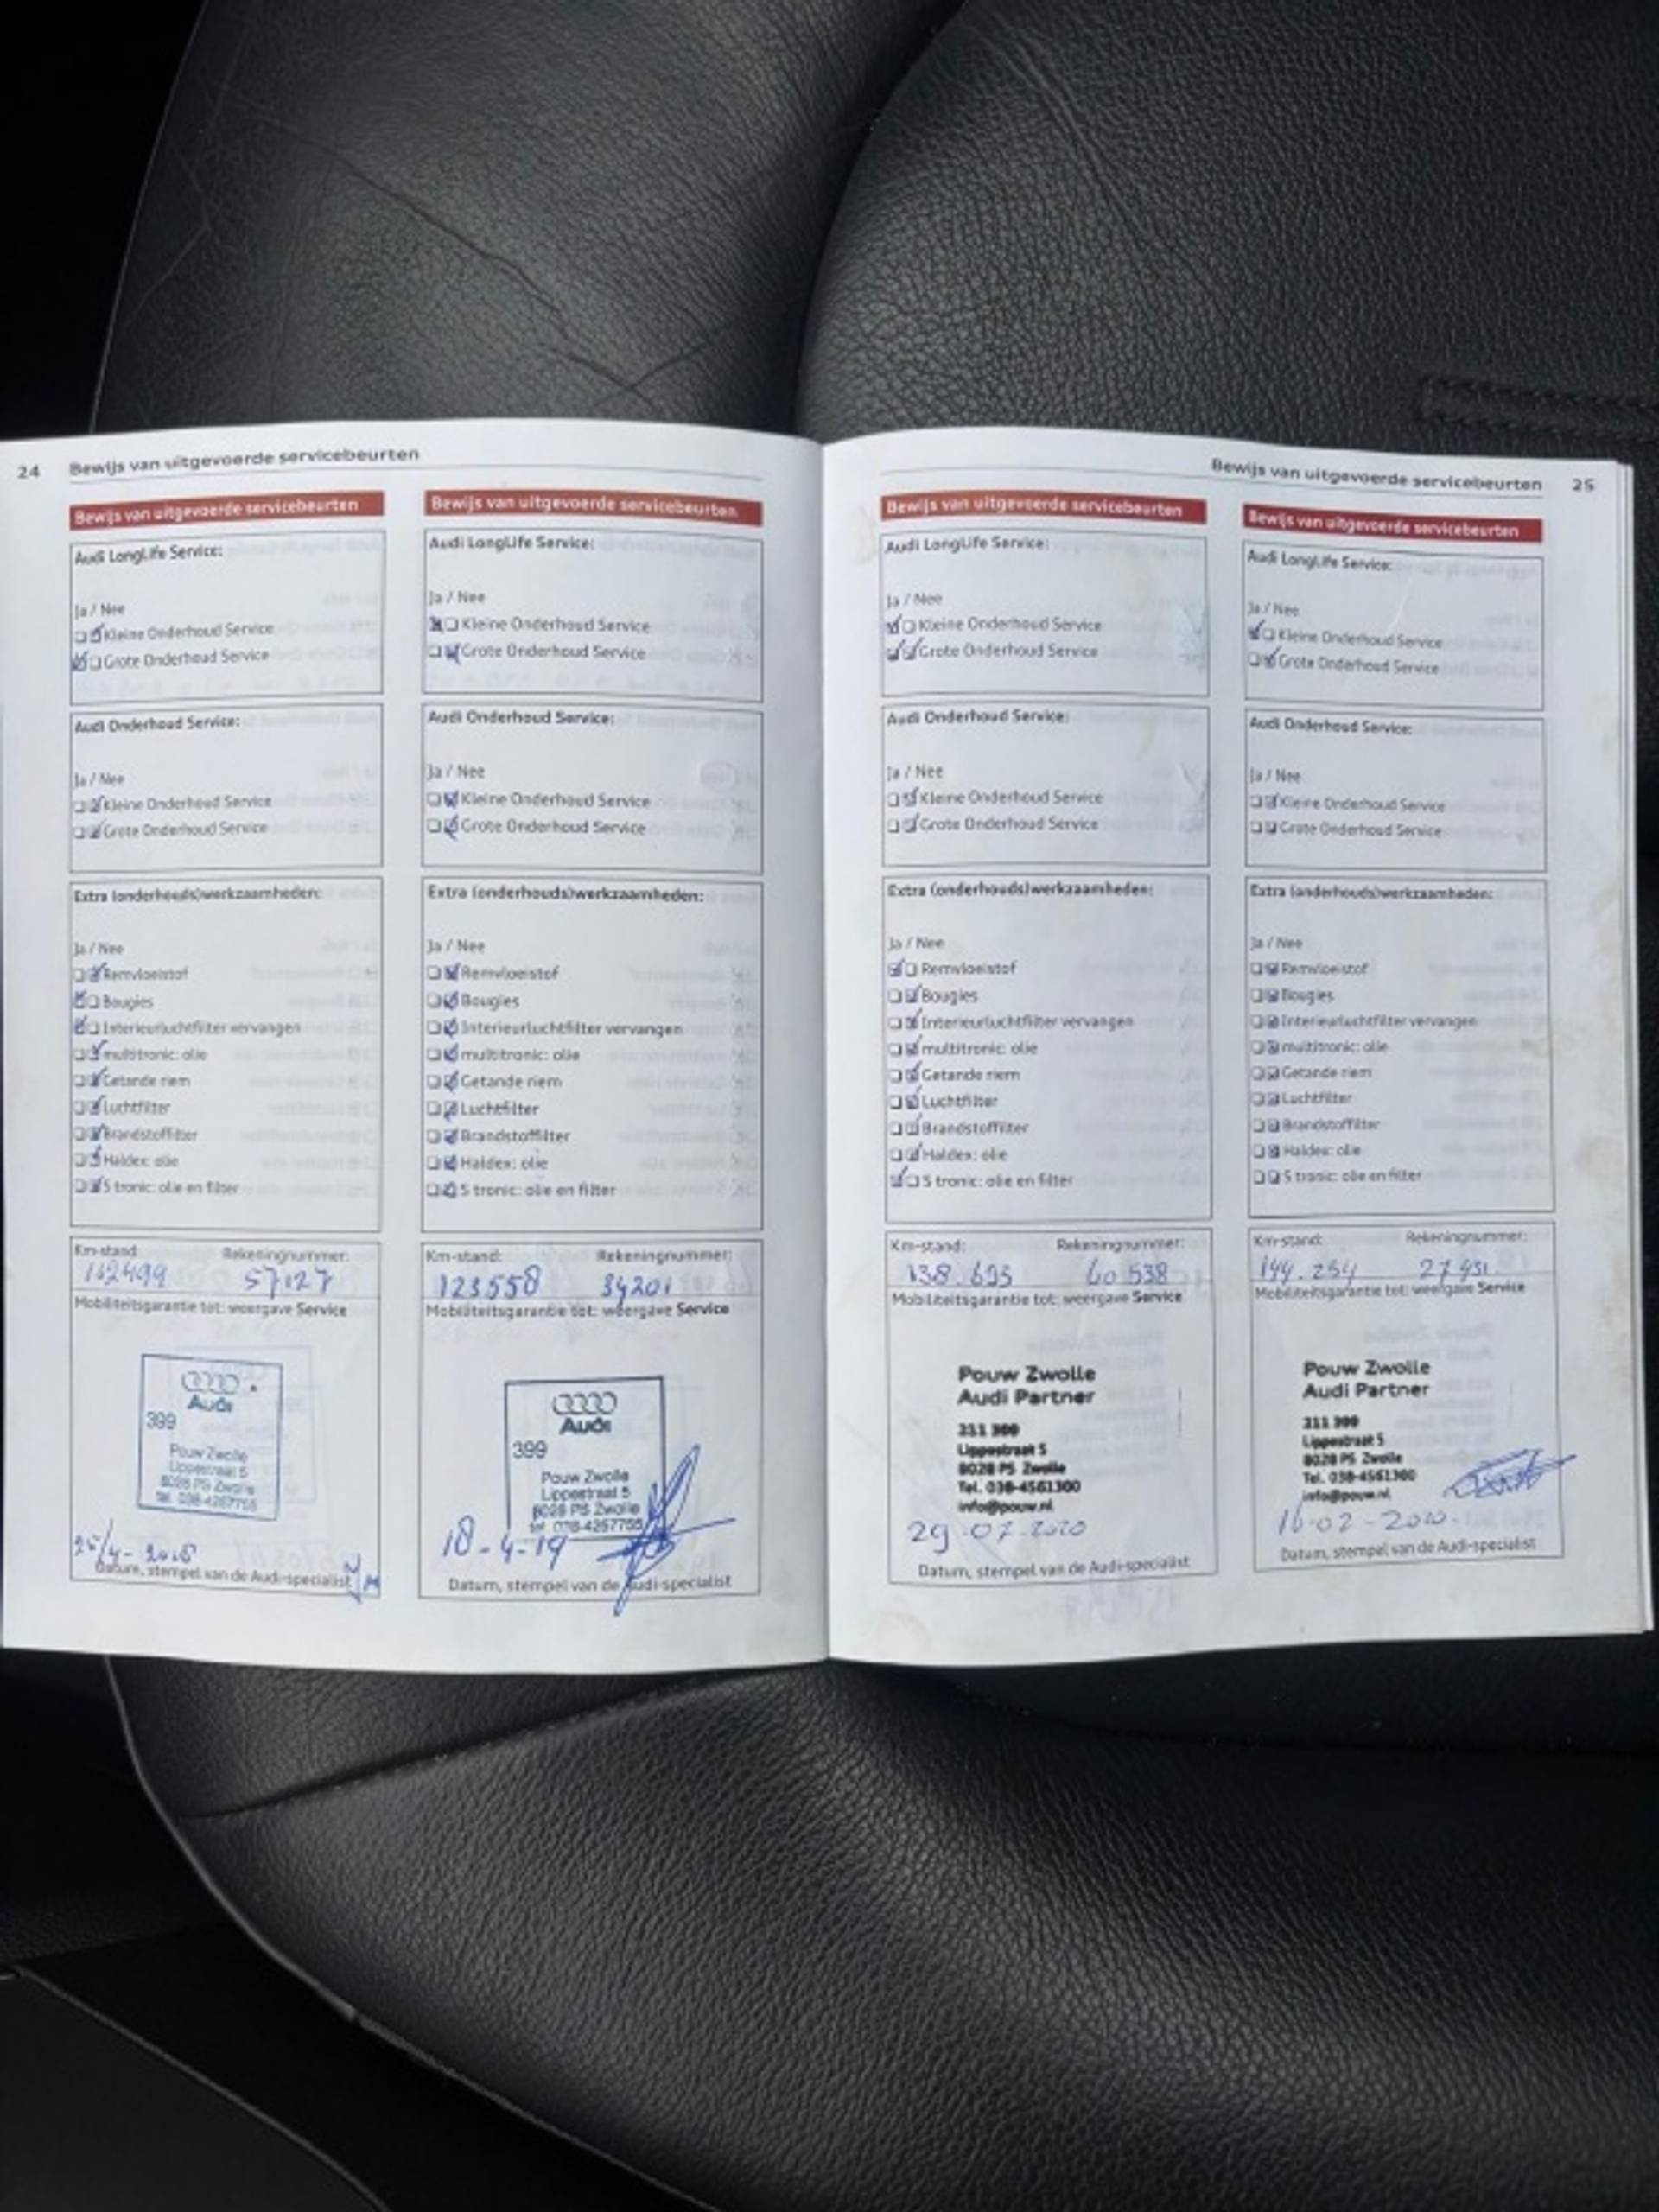 24 Bewijs van uitgevoerde servicebeurten
Bewijs van uitgevoerde servicebeurten
Audi LongLife Service:
Ja / Nee
Kleine Onderhoud Service
Grote Onderhoud Service
Audi Onderhoud Service:
Ja / Nee
Kleine Onderhoud Service
Grote Onderhoud Service
Extra (onderhouds)werkzaamheden:
Ja / Nee
Remvloeistof
Bougies
Interieurluchtfilter vervangen
multitronic: olie
Getande riem
Luchtfilter
Brandstoffilter
Haldex: olie
S tronic: olie en filter
Km-stand: Rekeningnummer:
102499 57127
Mobiliteitsgarantie tot: weergave Service
Audi
399
Pouw Zwolle
Lippestraat 5
8028 PS Zwolle
tel. 038-4257755
Datum, stempel van de Audi-specialist
Bewijs van uitgevoerde servicebeurten
Audi LongLife Service:
Ja / Nee
Kleine Onderhoud Service
Grote Onderhoud Service
Audi Onderhoud Service:
Ja / Nee
Kleine Onderhoud Service
Grote Onderhoud Service
Extra (onderhouds)werkzaamheden:
Ja / Nee
Remvloeistof
Bougies
Interieurluchtfilter vervangen
multitronic: olie
Getande riem
Luchtfilter
Brandstoffilter
Haldex: olie
S tronic: olie en filter
Km-stand: Rekeningnummer:
123558 34201
Mobiliteitsgarantie tot: weergave Service
Audi
399
Pouw Zwolle
Lippestraat 5
8028 PS Zwolle
tel. 038-4257755
18-4-19
Datum, stempel van de Audi-specialist
Bewijs van uitgevoerde servicebeurten 25
Bewijs van uitgevoerde servicebeurten
Audi LongLife Service:
Ja / Nee
Kleine Onderhoud Service
Grote Onderhoud Service
Audi Onderhoud Service:
Ja / Nee
Kleine Onderhoud Service
Grote Onderhoud Service
Extra (onderhouds)werkzaamheden:
Ja / Nee
Remvloeistof
Bougies
Interieurluchtfilter vervangen
multitronic: olie
Getande riem
Luchtfilter
Brandstoffilter
Haldex: olie
S tronic: olie en filter
Km-stand: Rekeningnummer:
138.695 60538
Mobiliteitsgarantie tot: weergave Service
Pouw Zwolle
Audi Partner
211 399
Lippestraat 5
8028 PS Zwolle
Tel. 038-4561300
info@pouw.nl
29-07-2020
Datum, stempel van de Audi-specialist
Bewijs van uitgevoerde servicebeurten
Audi LongLife Service:
Ja / Nee
Kleine Onderhoud Service
Grote Onderhoud Service
Audi Onderhoud Service:
Ja / Nee
Kleine Onderhoud Service
Grote Onderhoud Service
Extra (onderhouds)werkzaamheden:
Ja / Nee
Remvloeistof
Bougies
Interieurluchtfilter vervangen
multitronic: olie
Getande riem
Luchtfilter
Brandstoffilter
Haldex: olie
S tronic: olie en filter
Km-stand: Rekeningnummer:
144.254 27931
Mobiliteitsgarantie tot: weergave Service
Pouw Zwolle
Audi Partner
211 399
Lippestraat 5
8028 PS Zwolle
Tel. 038-4561300
info@pouw.nl
16-02-2020
Datum, stempel van de Audi-specialist